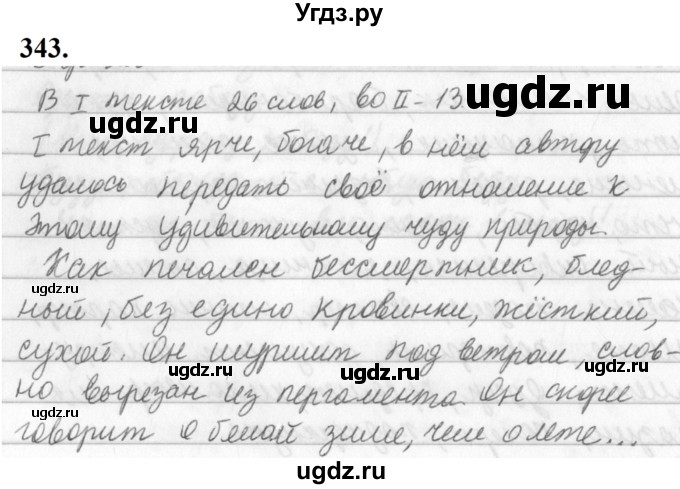 Угдз.ру
343.
В I тексте 26 слов, во II - 13
ugdz.ru
I текст ярче, богаче, в нём автору
удалось передать своё отношение к
этому удивительному чуду природы.
Как печален бессмертник, блед-
ugdz.ru ugdz.ru ugdz.ru
ный, без едино кровинки, жёсткий,
сухой. Он шуршит под ветром, слов-
но вырезан из пергамента. Он скорее
ugdz.ru ugdz.ru ugdz.ru
говорит о белой зиме, чем о лете...
ugdz.ru